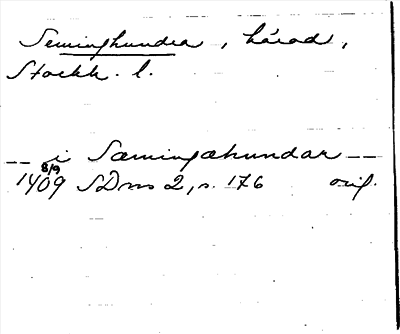 Seminghundra, härad,
Stockh. l.
-- i Sæmingæhundar --
8/9
1409 SDns 2, s. 176 orig.